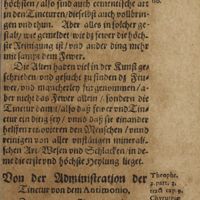 höchsten/ also sind auch cementische art
in den Tincturen/ dieselbst auch vollbrin-
gen vnd thun. Aber alles in solcher ge-
stalt/ wie gemeldet wie dz fewer die höch-
ste Reinigung ist/ vnd ander ding mehr
mit sampt dem Fewer.
Die Alten haben viel in der Kunst ge-
schrieben/ vnd gesucht zu finden dz Few-
wer/ vnd mancherley fürgenommen/ a-
ber nicht das Fewer allein/ sondern die
Tinctur dann/ also daß fewer vnd Tinc-
tur ein ding sey/ vnnd daß sie einander
helffen renovieren den Menschen/ vnnd
reinigen von allen vnstäntigen minerali-
schen Art/ Wesen vnd Schlacken/ in de-
me die erste vnd höchste Heylung liget.
Von der Administration der
Tinctur von dem Antimonio,
Theophr.
2. part. 3.
tract cap. 9.
Chyrurgiæ